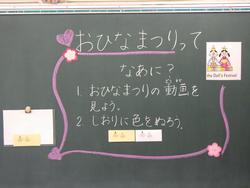 おひなまつりって
なあに?
1. おひなまつりの動画を
どうが
見よう。
2. しおりに色をぬろう。
the Doll's Festival